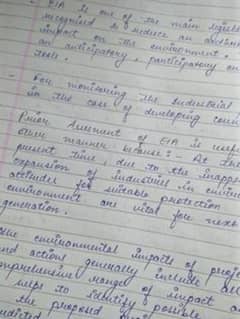 - EIA is one of the main
recognised to reduce an
impact on the environment.
an anticipatory, participatory
tools.
- For monitoring the industrial
in the case of developing
Prior Assessment of EIA is
other manner because:- At the
present time, due to the
expansion of industries in
attitudes for suitable protection
environment are vital for next
generation.
the environmental impacts of
and actions generally include all
comprehensive ranges of impact
helps to identify possible
the proposed